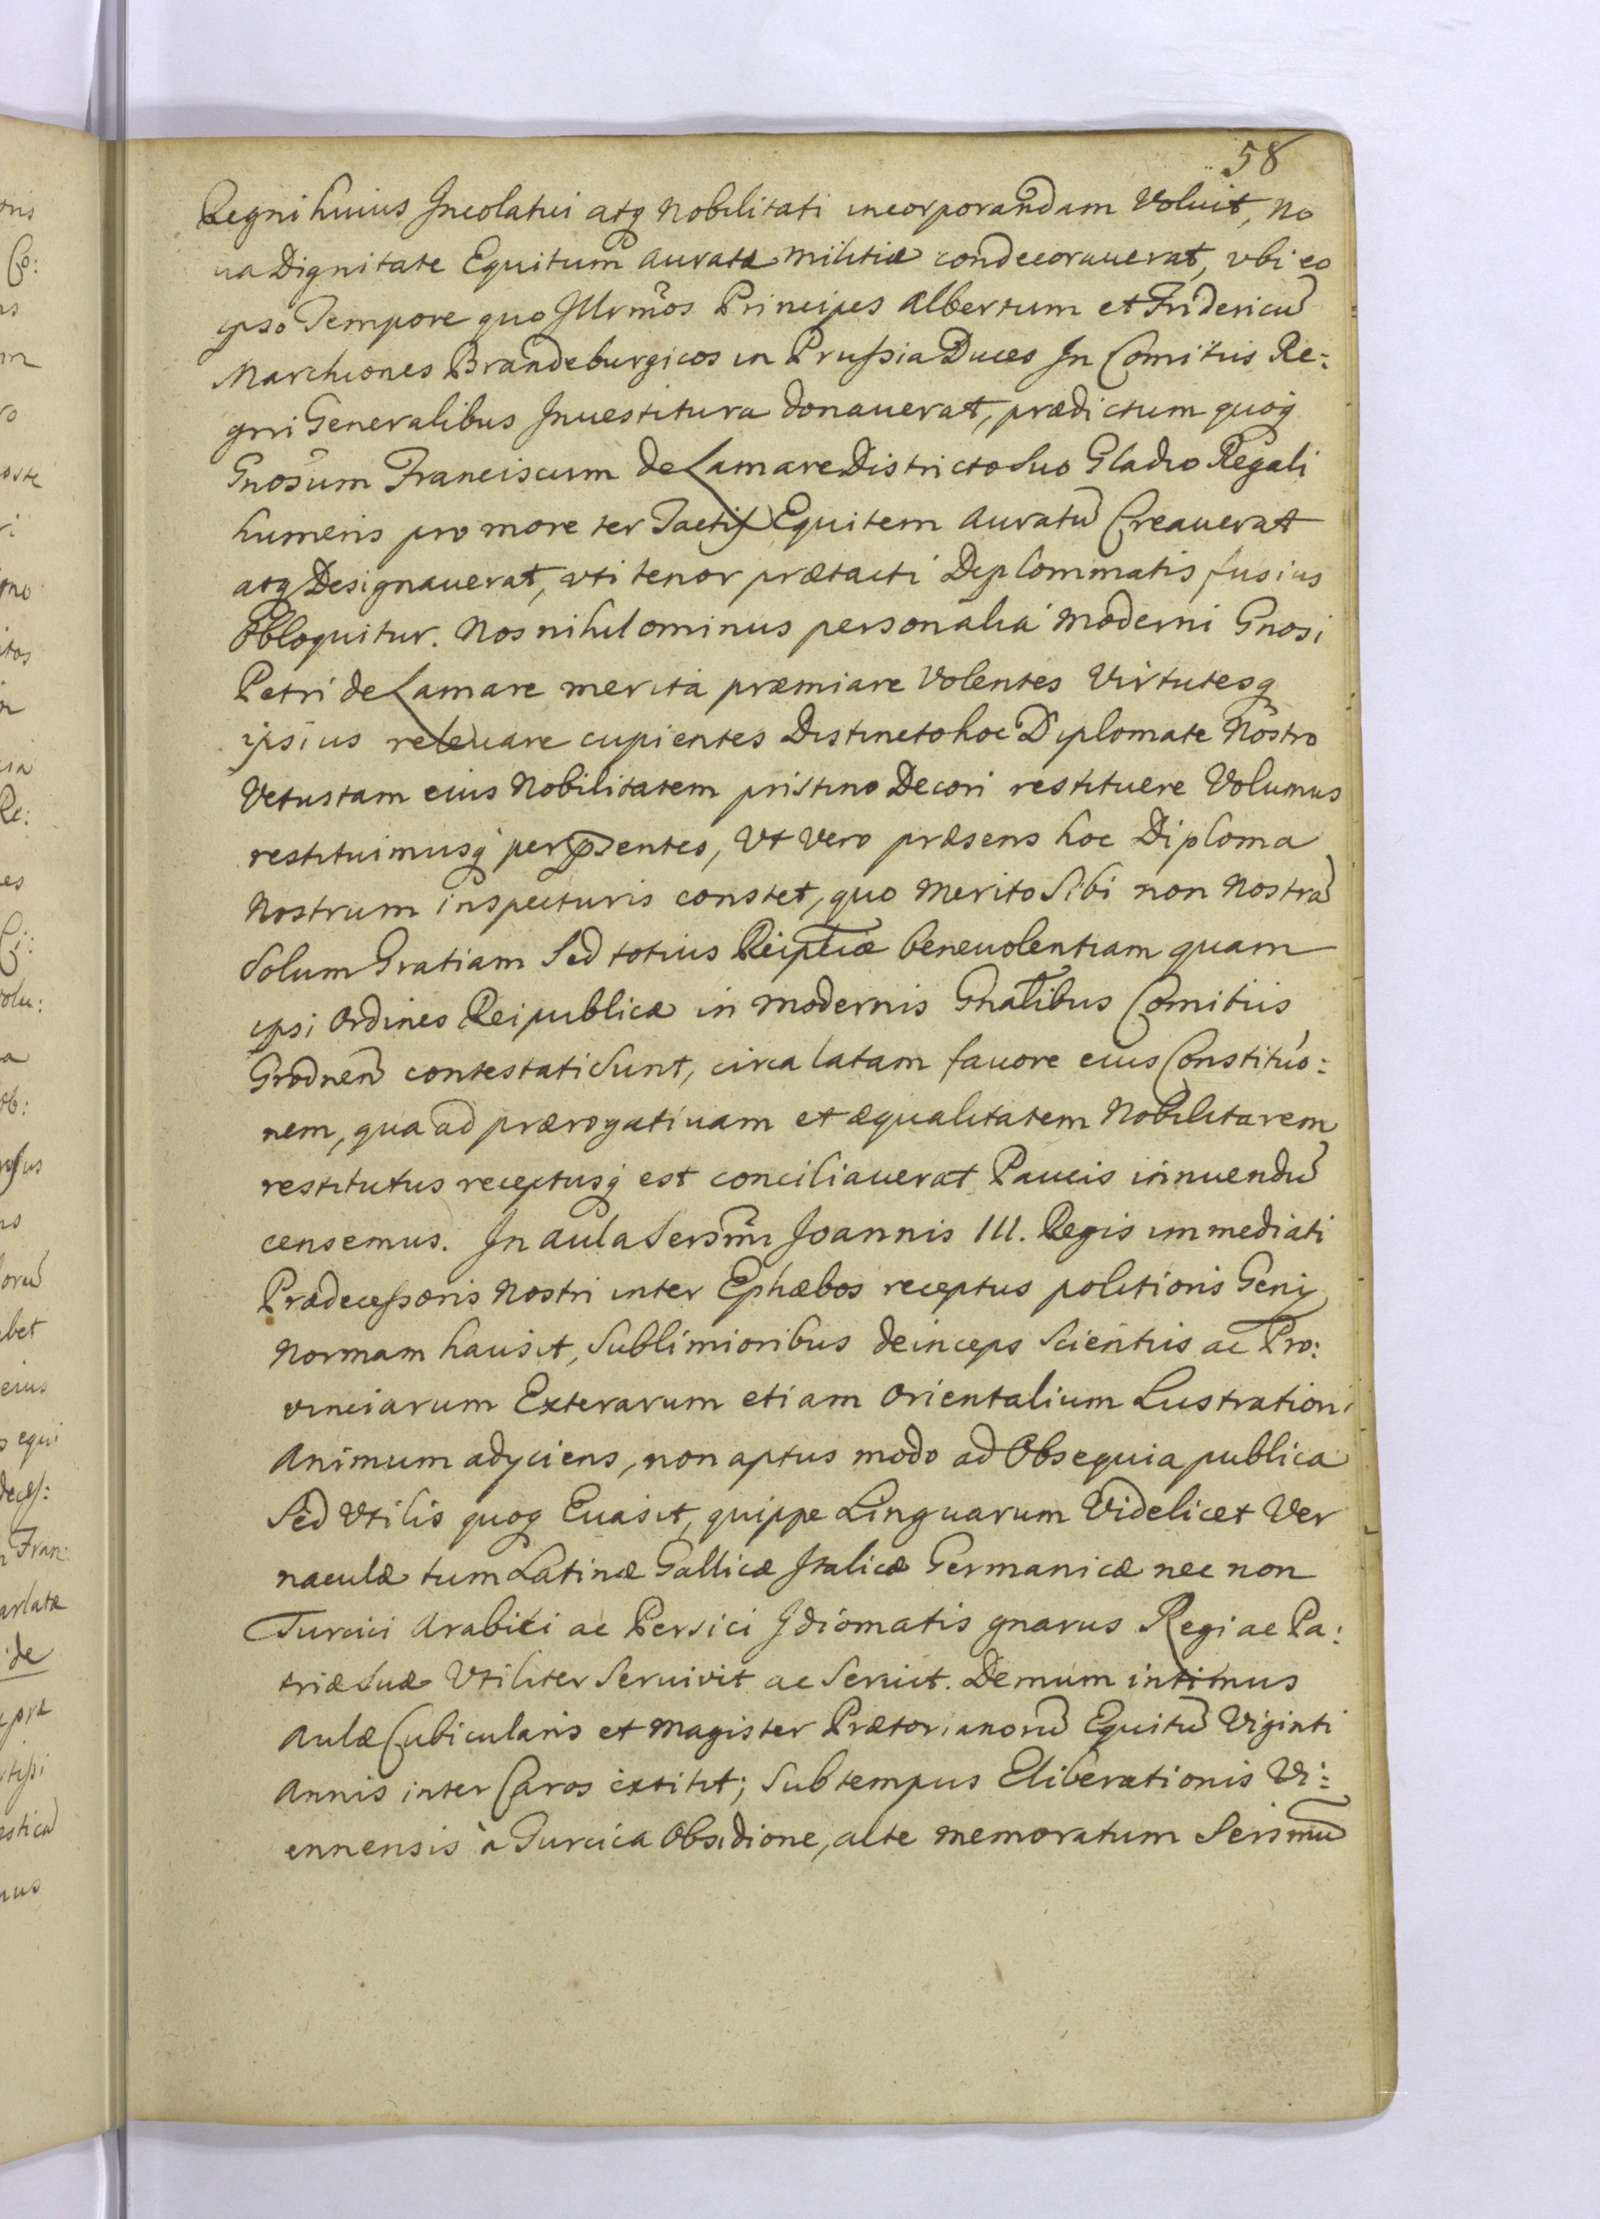 58
Regni huius Incolatui atq Nobilitati incorporandam Voluit, No
ua Dignitate Equitum auratæ militiæ condecorauerat, vbi eo
ipso Tempore quo Illrmos Principes Albertum et Fridericu
Marchiones Brandeburgicos in Prussia Duces In Comitiis Re:
gni Generalibus Inuestitura donauerat, prædictum quoq
Gnosum Franciscum de Lamare Districto Suo Gladio Regali
humeris pro more ter Tactis Equitem auratu Creauerat
atq Designauerat, vti tenor prætacti Diplommatis fusius
Obloquitur. Nos nihilominus personalia moderni Gnosi
Petri de Lamare merita præmiare Volentes Virtutesq
ipsius releuare cupientes Distincto hoc Diplomate Nostro
Vetustam eius Nobilitatem pristino Decori restituere Volumus
restituimusq per præsentes, Vt Vero præsens hoc Diploma
Nostrum inspecturis constet, quo merito Sibi non Nostra
Solum Gratiam Sed totius Reiplicæ beneuolentiam quam
ipsi Ordines Reipublicæ in modernis Gnalibus Comitiis
Grodnen contestati Sunt, circa latam fauore eius Constituo:
nem, qua ad prærogatiuam et æqualitatem Nobilitarem
restitutus receptusq est conciliauerat Paucis innuendu
censemus. In aula Sersmi Joannis III. Regis immediati
Prædecessoris Nostri inter Ephæbos receptus politioris Genij
Normam hausit, Sublimioribus deinceps Scientiis ac Pro:
vinciarum Exterarum etiam Orientalium Lustrationi
Animum adyciens, non aptus modo ad Obsequia publica
Sed Vtilis quoq Euasit, quippe Linguarum Videlicet Ver
naculæ tum Latinæ Gallicæ Italicæ Germanicæ nec non
Turcici Arabici ac Persici Idiomatis gnarus Regi ac Pa:
triæ Suæ Vtiliter Seruivit ac Seruit. Demum intimus
Aulæ Cubicularis et Magister Prætorianoru Equitu Viginti
Annis inter Caros extitit; Sub tempus Eliberationis Vi:
ennensis à Turcica Obsidione, alte memoratum Sersmu